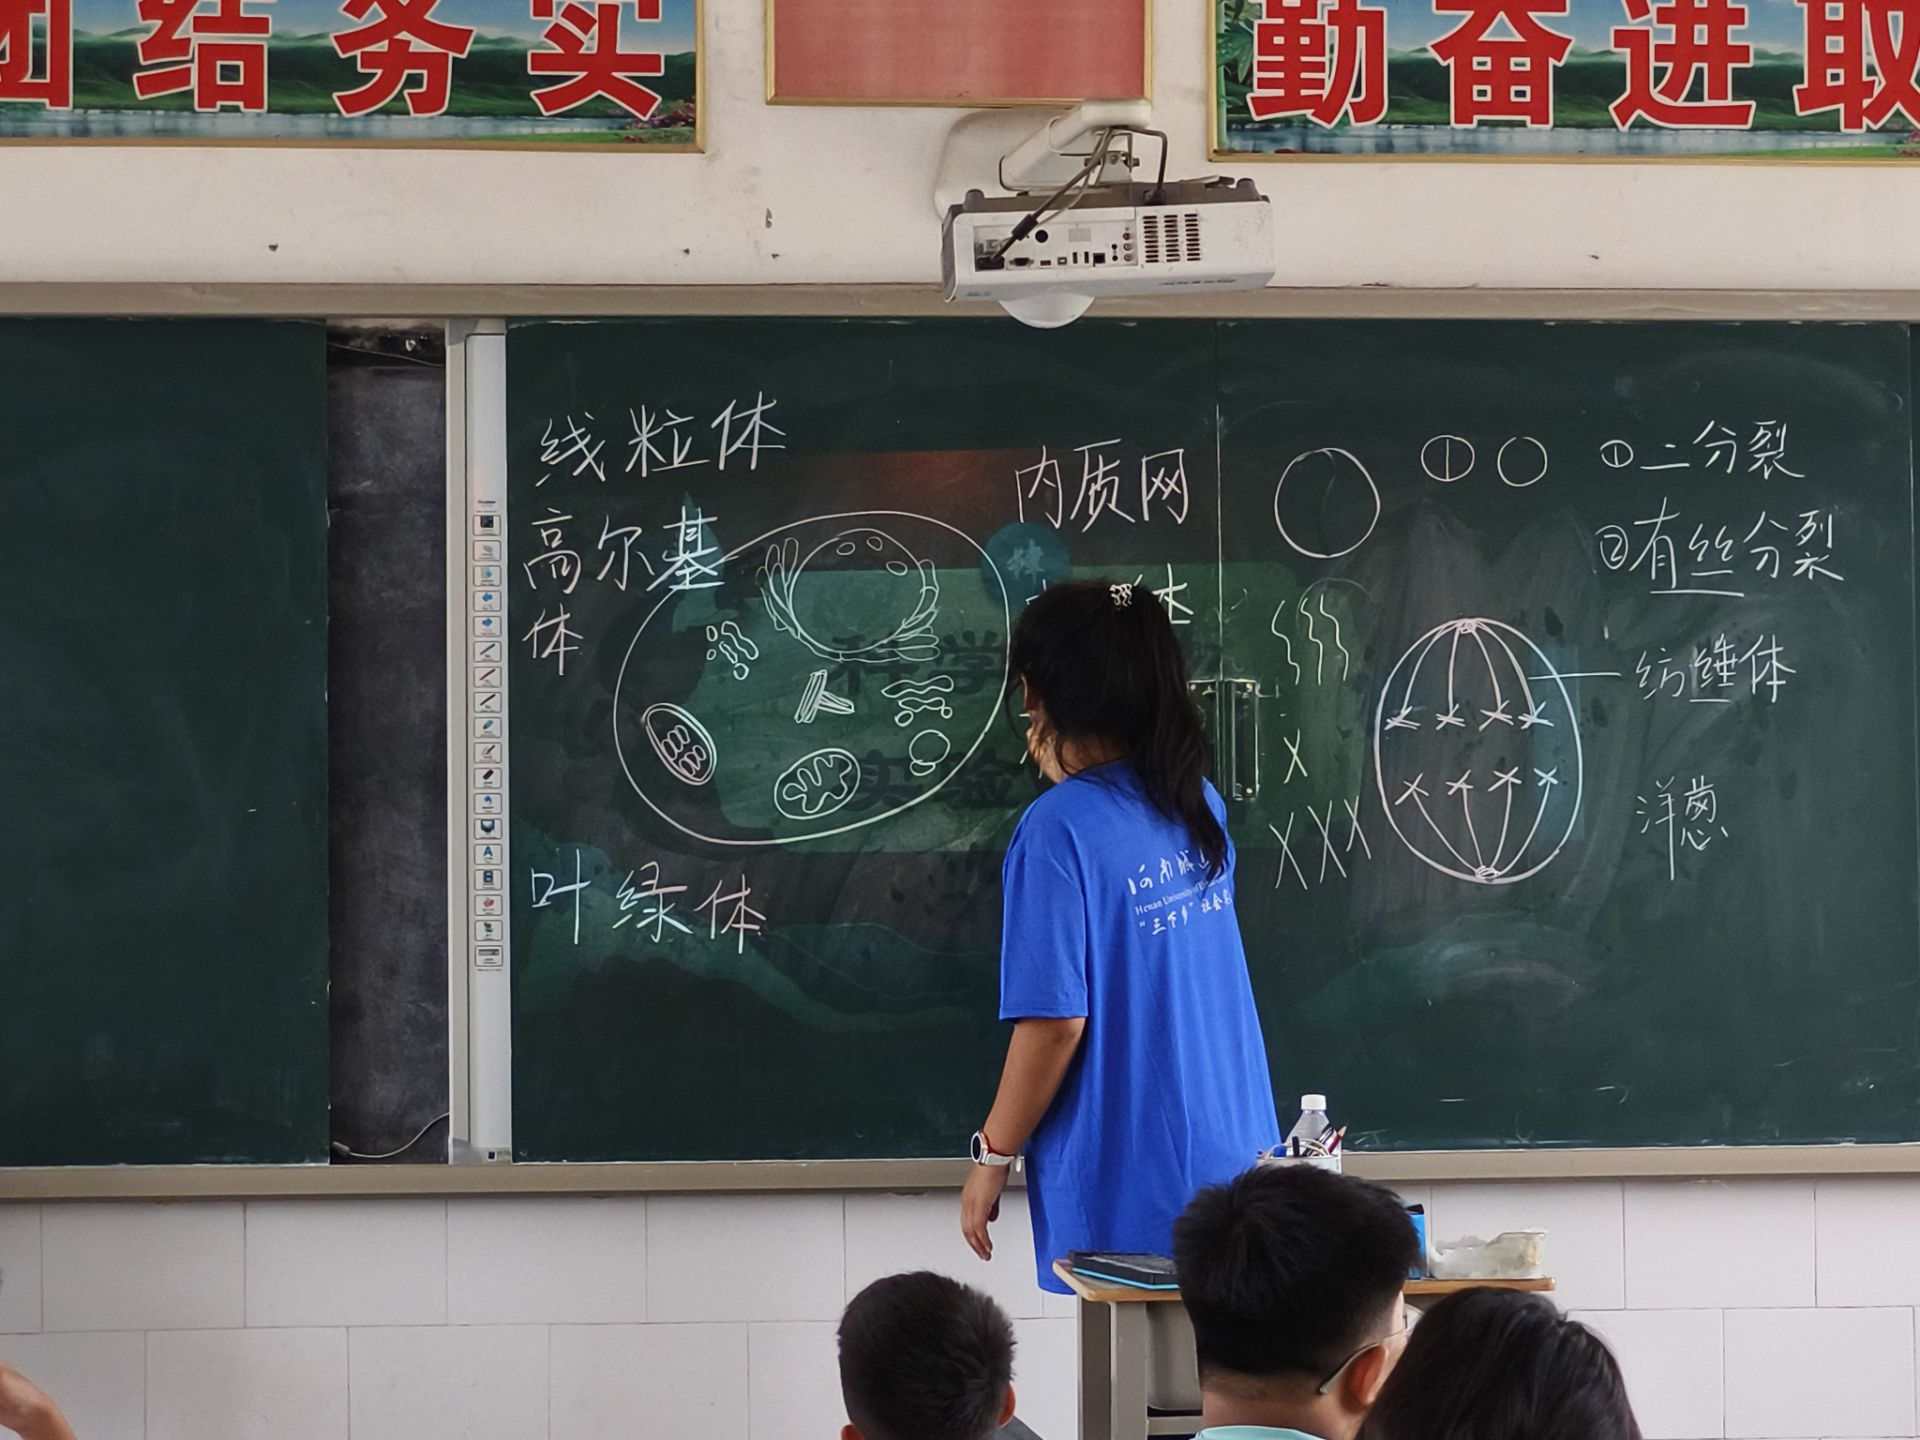 团结务实
勤奋进取
线粒体
高尔基
体
内质网
体
叶绿体
①二分裂
②有丝分裂
纺缍体
洋葱
科学
实验
河南城建
Henan University of
"三下乡" 社会实